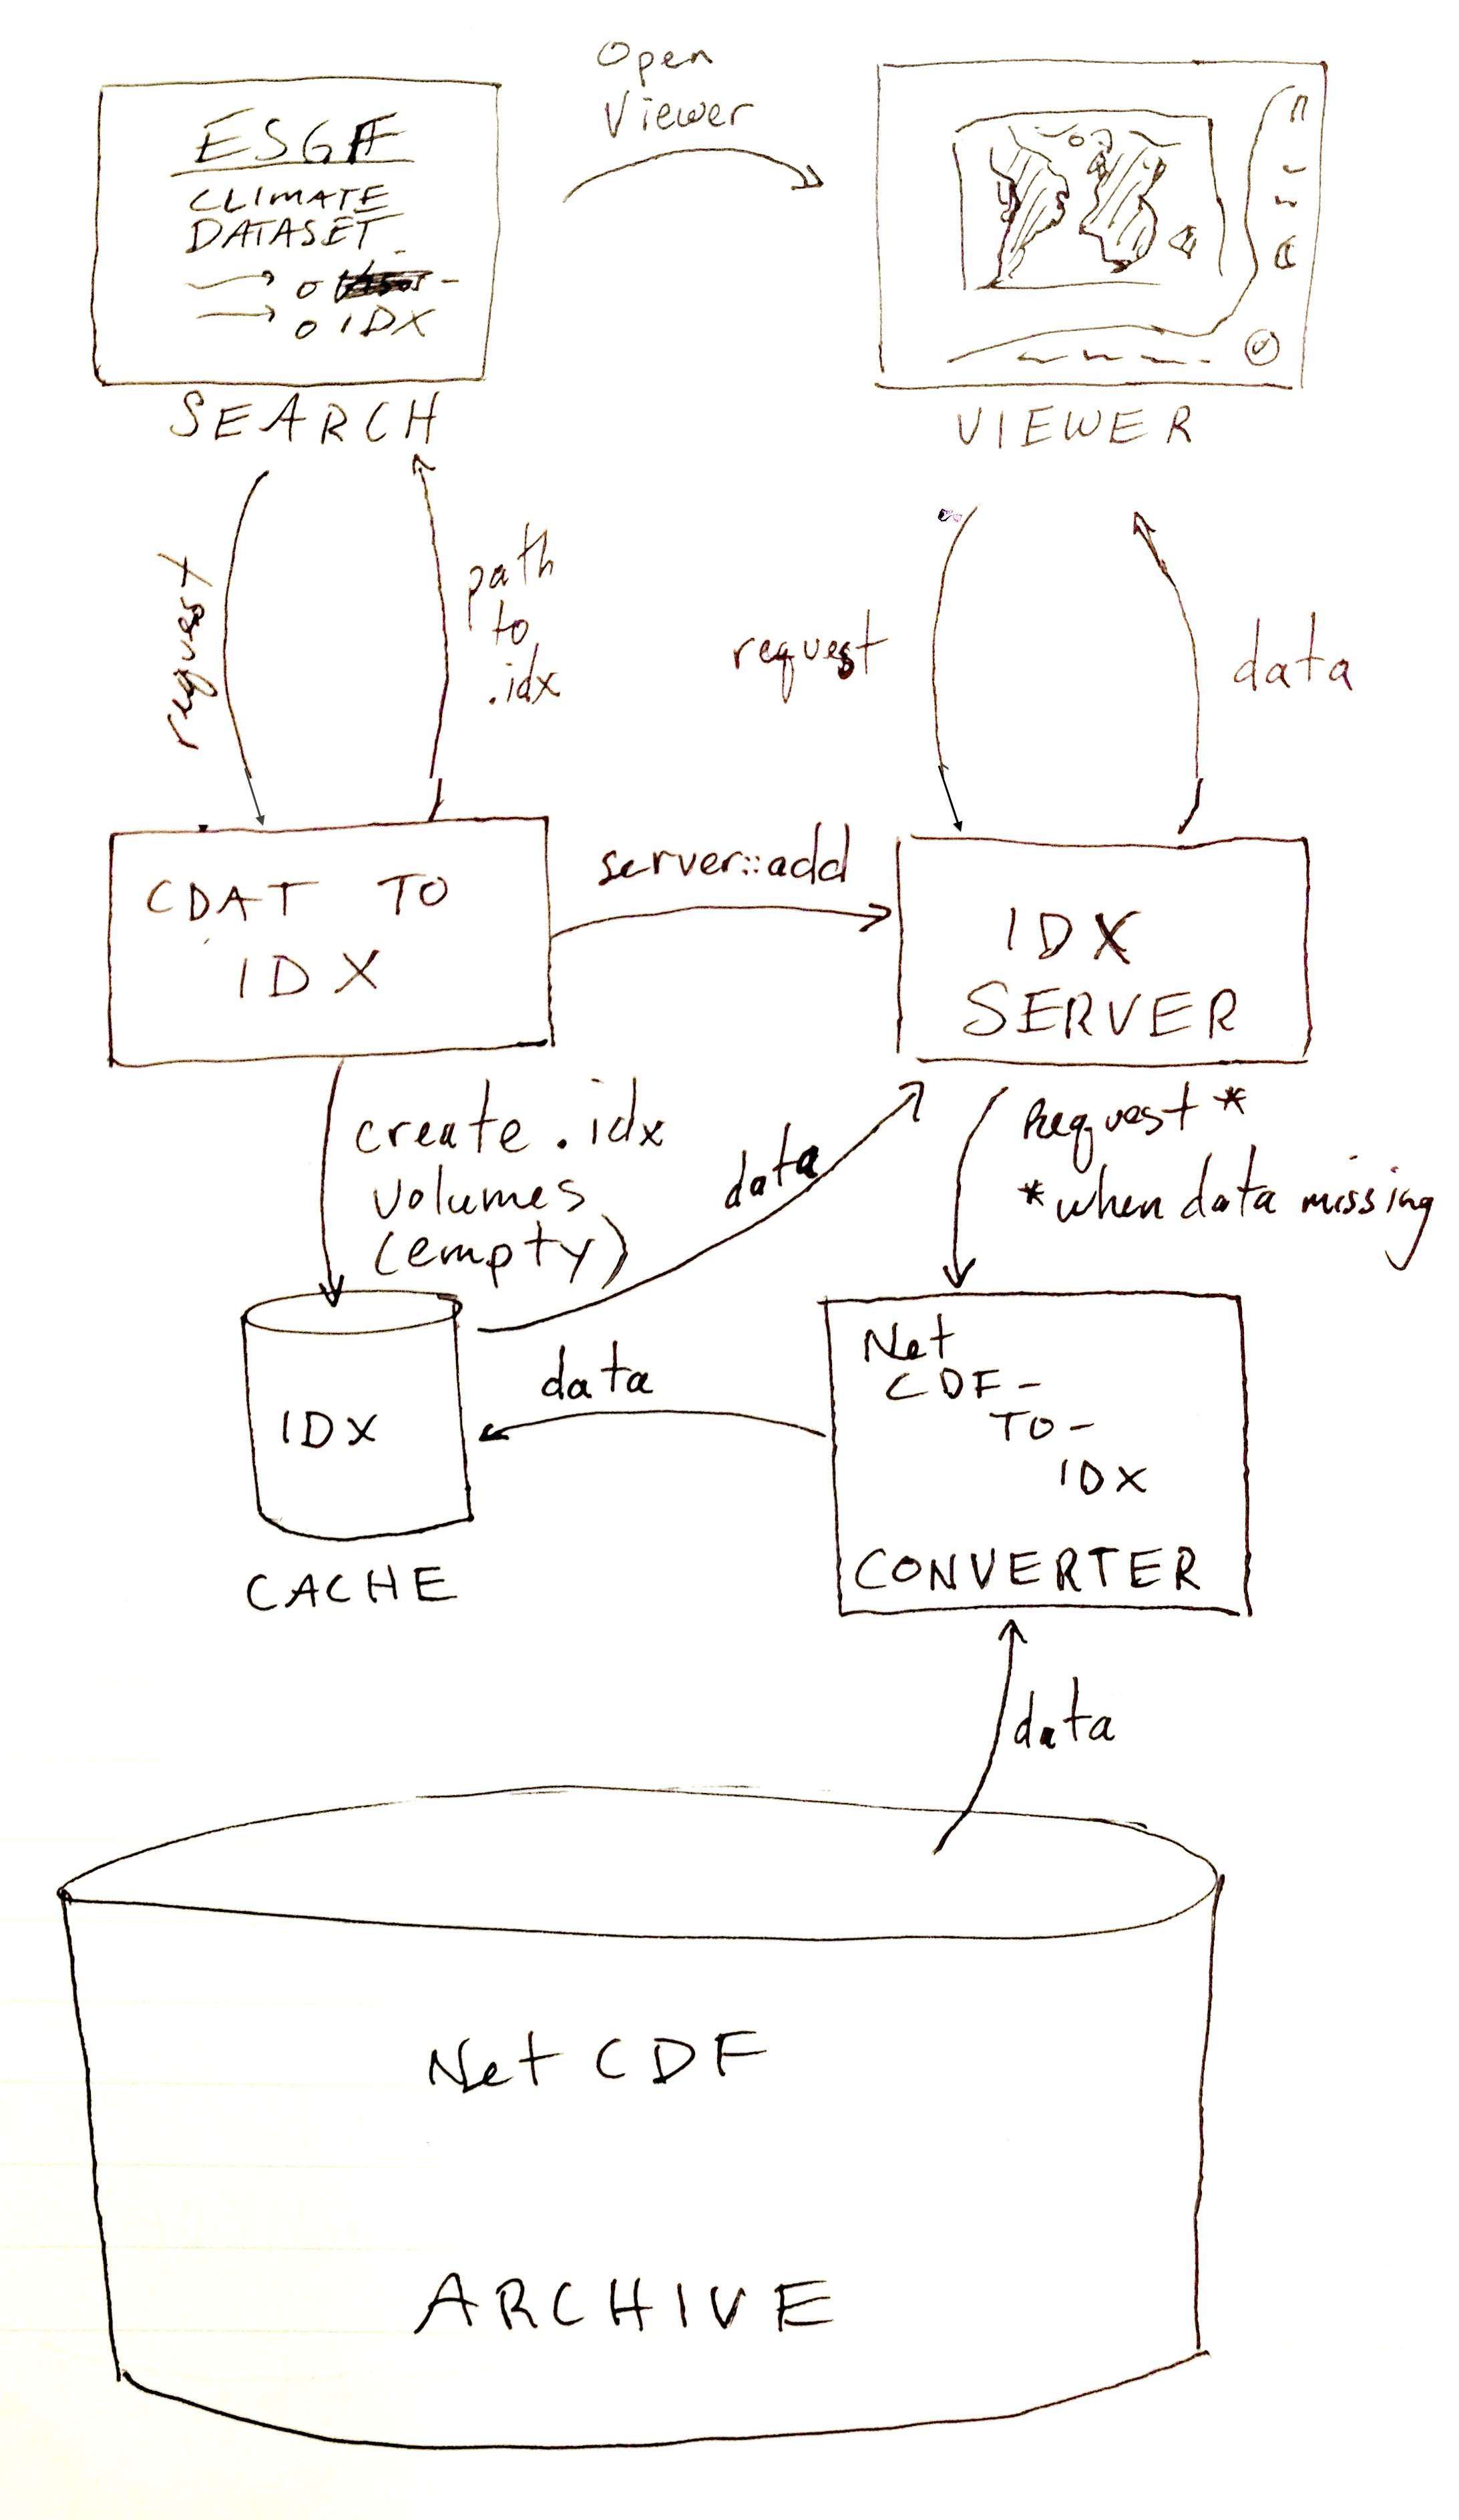 Open
Viewer
ESGF
CLIMATE
DATASET
IDX
SEARCH
VIEWER
request
path
to
.idx
request
data
CDAT TO
IDX
server::add
IDX
SERVER
create .idx
volumes
(empty)
data
Request *
*when data missing
IDX
CACHE
data
Net
CDF-
TO-
IDX
CONVERTER
data
NetCDF
ARCHIVE